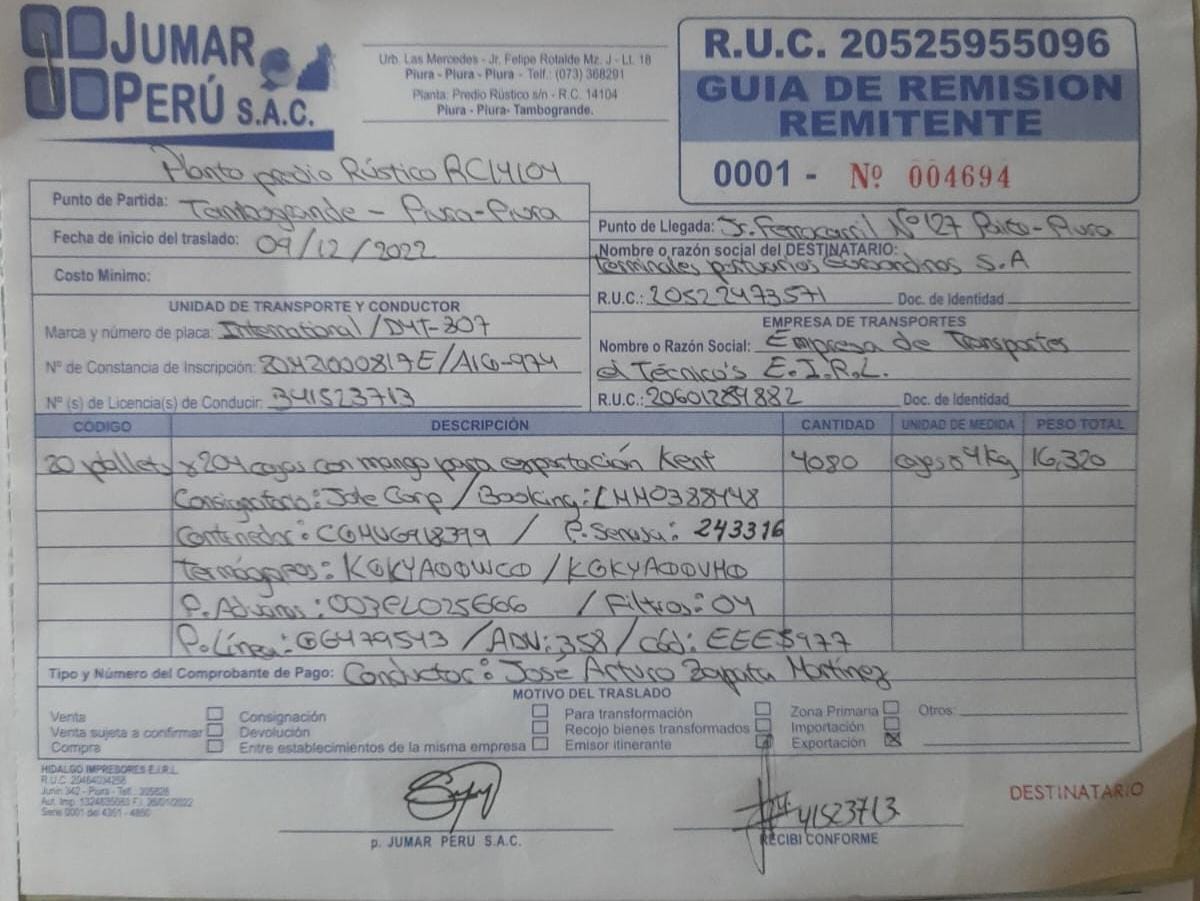 JUMAR PERÚ S.A.C.
Urb. Las Mercedes - Jr. Felipe Rotalde Mz. J - Lt. 18
Piura - Piura - Piura - Telf.: (073) 368291
Planta: Predio Rústico s/n - R.C. 14104
Piura - Piura- Tambogrande.
R.U.C. 20525955096
GUIA DE REMISION
REMITENTE
0001 - Nº 004694
Planta predio Rústico RC14104
Punto de Partida: Tambogrande - Piura-Piura
Fecha de inicio del traslado: 09/12/2022
Costo Mínimo:
Punto de Llegada: Jr. Ferrocarril Nº127 Paita-Piura
Nombre o razón social del DESTINATARIO:
terminales portuarios Euroandinos S.A
R.U.C.: 20522473571 Doc. de Identidad
UNIDAD DE TRANSPORTE Y CONDUCTOR
Marca y número de placa: International /D4T-807
Nº de Constancia de Inscripción: /A1G-974
Nº (s) de Licencia(s) de Conducir: B41523713
EMPRESA DE TRANSPORTES
Nombre o Razón Social: Empresa de Transportes
el Técnico's E.I.R.L.
R.U.C.: 20601289882 Doc. de Identidad
CÓDIGO DESCRIPCIÓN CANTIDAD UNIDAD DE MEDIDA PESO TOTAL
20 pallets x204 cajas con mango para exportación Kent 4080 cajas 4kg 16,320
Consignatario: Jole Corp / Booking: LMM0388448
Contenedor: / P. Senasa: 243316
Termógrafos: KGKYA00WC0 / KGKYA00VH0
P. Aduanas: 003PL025666 / Filtros: 04
P. Línea: GG479543 / ADV: 358 / cód: EEE$977
Tipo y Número del Comprobante de Pago: Conductor: José Arturo Zapata Martínez
MOTIVO DEL TRASLADO
Venta
Venta sujeta a confirmar
Compra
Consignación
Devolución
Entre establecimientos de la misma empresa
Para transformación
Recojo bienes transformados
Emisor itinerante
Zona Primaria
Importación
Exportación
Otros:
HIDALGO IMPRESORES E.I.R.L.
R.U.C. 20484034258
Junin 342 - Piura - Telf.: 305828
Serie 0001 del 4351 - 4850
p. JUMAR PERU S.A.C.
41523713
RECIBI CONFORME
DESTINATARIO